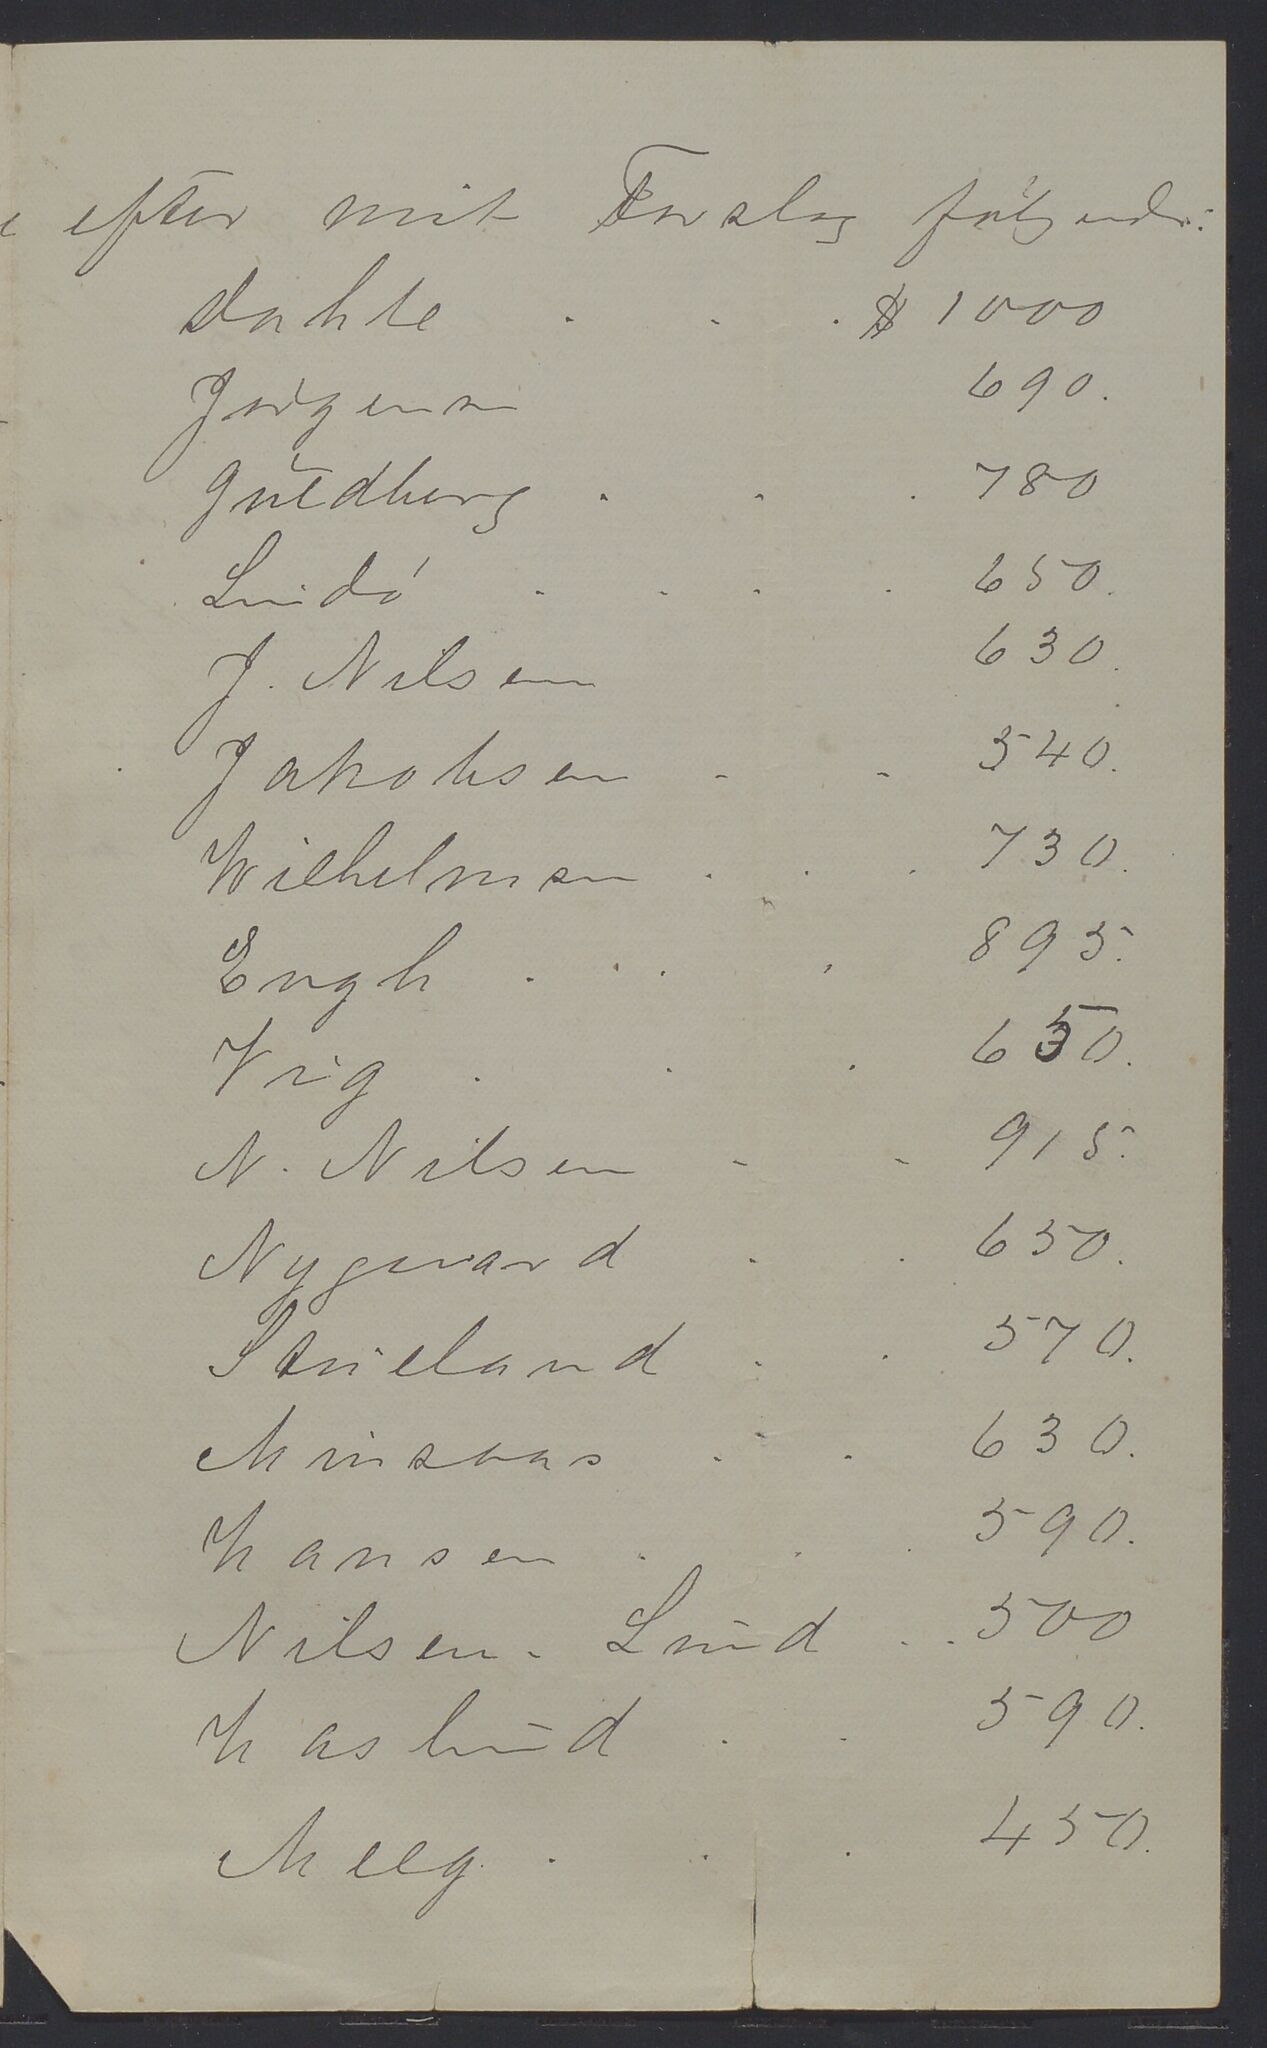 efter mit Forslag følgende:
Dahle . . . $ 1000
Jørgensen 690.
Guldberg . . . 780
Lindø . . . . 650.
J. Nilsen 630.
Jakobsen - - 540.
Wilhelmsen . . . 730.
Engh . . . . 895.
Vig . . . 650.
N. Nilsen - - 915.
Nygaard . . 650.
Stueland . . 570.
Minsaas . . . 630.
Hansen . . . 590.
Nilsen-Lund . . 500
Haslund . . 590.
Meeg . . . 450.